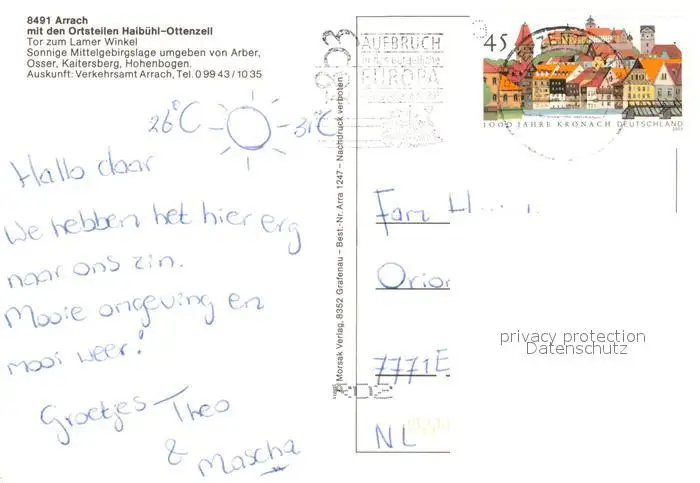 8491 Arrach
mit den Ortsteilen Haibühl-Ottenzell
Tor zum Lamer Winkel
Sonnige Mittelgebirgslage umgeben von Arber,
Osser, Kaitersberg, Hohenbogen.
Auskunft: Verkehrsamt Arrach, Tel. 0 99 43 / 10 35
26°C - - 31°C
Hallo daar
We hebben het hier erg
naar ons zin.
Mooie omgeving en
mooi weer!
Groetjes Theo
& Mascha
© Morsak Verlag, 8352 Grafenau – Best.-Nr. Arra 1247 – Nachdruck verboten
AUFBRUCH
EUROPA
45
1000 JAHRE KRONACH DEUTSCHLAND
Fam H
7771E
NL
privacy protection
Datenschutz